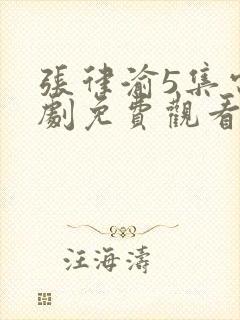 張律渝5集電
劇免費觀看
汪海濤